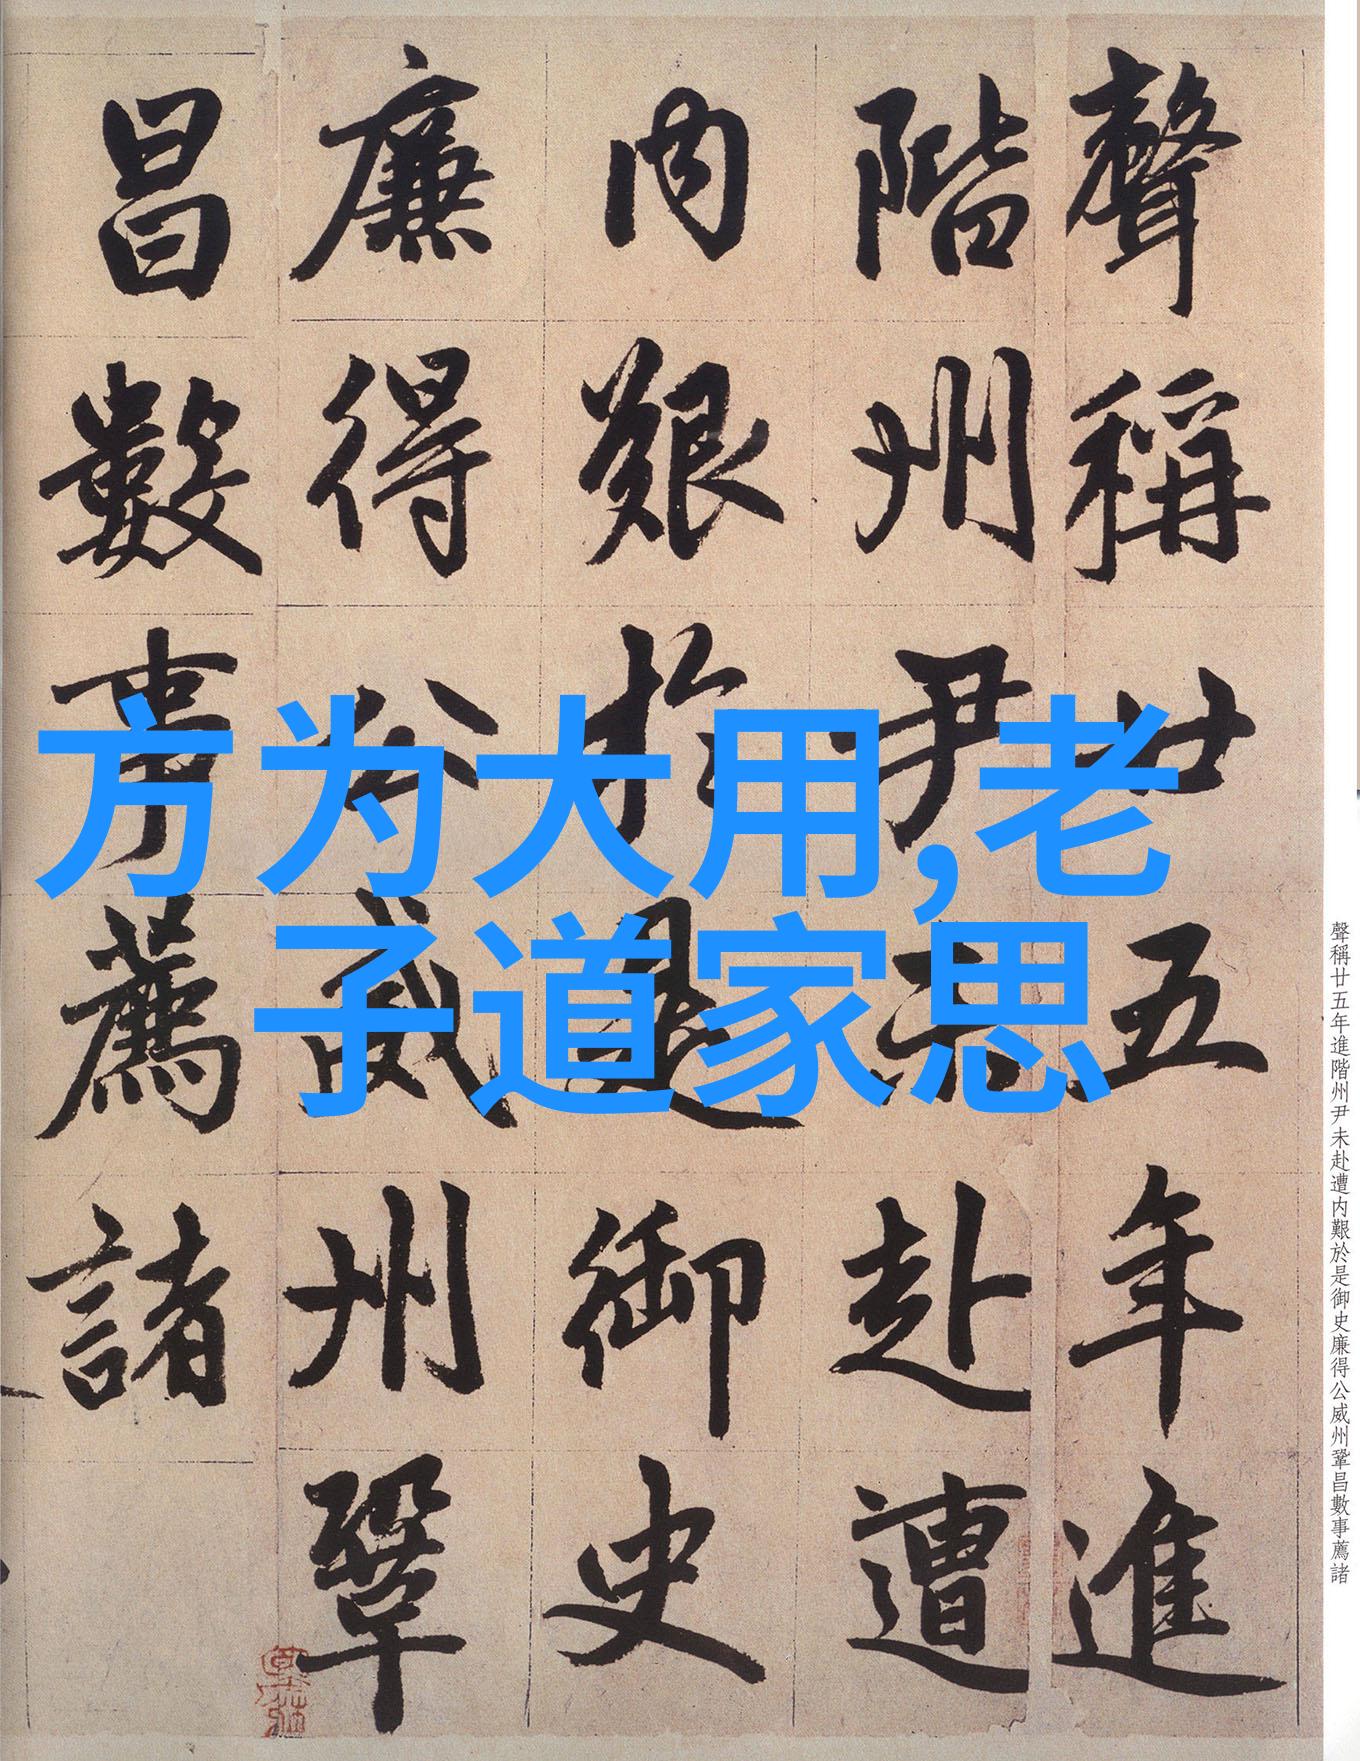 方为大用,老
子道家思
聲稱廿五年進
階州尹未赴遭
内艱於是御史
廉得公威州鞏
昌數事薦諸
聲稱廿五年進階州尹未赴遭内艱於是御史廉得公威州鞏昌數事薦諸